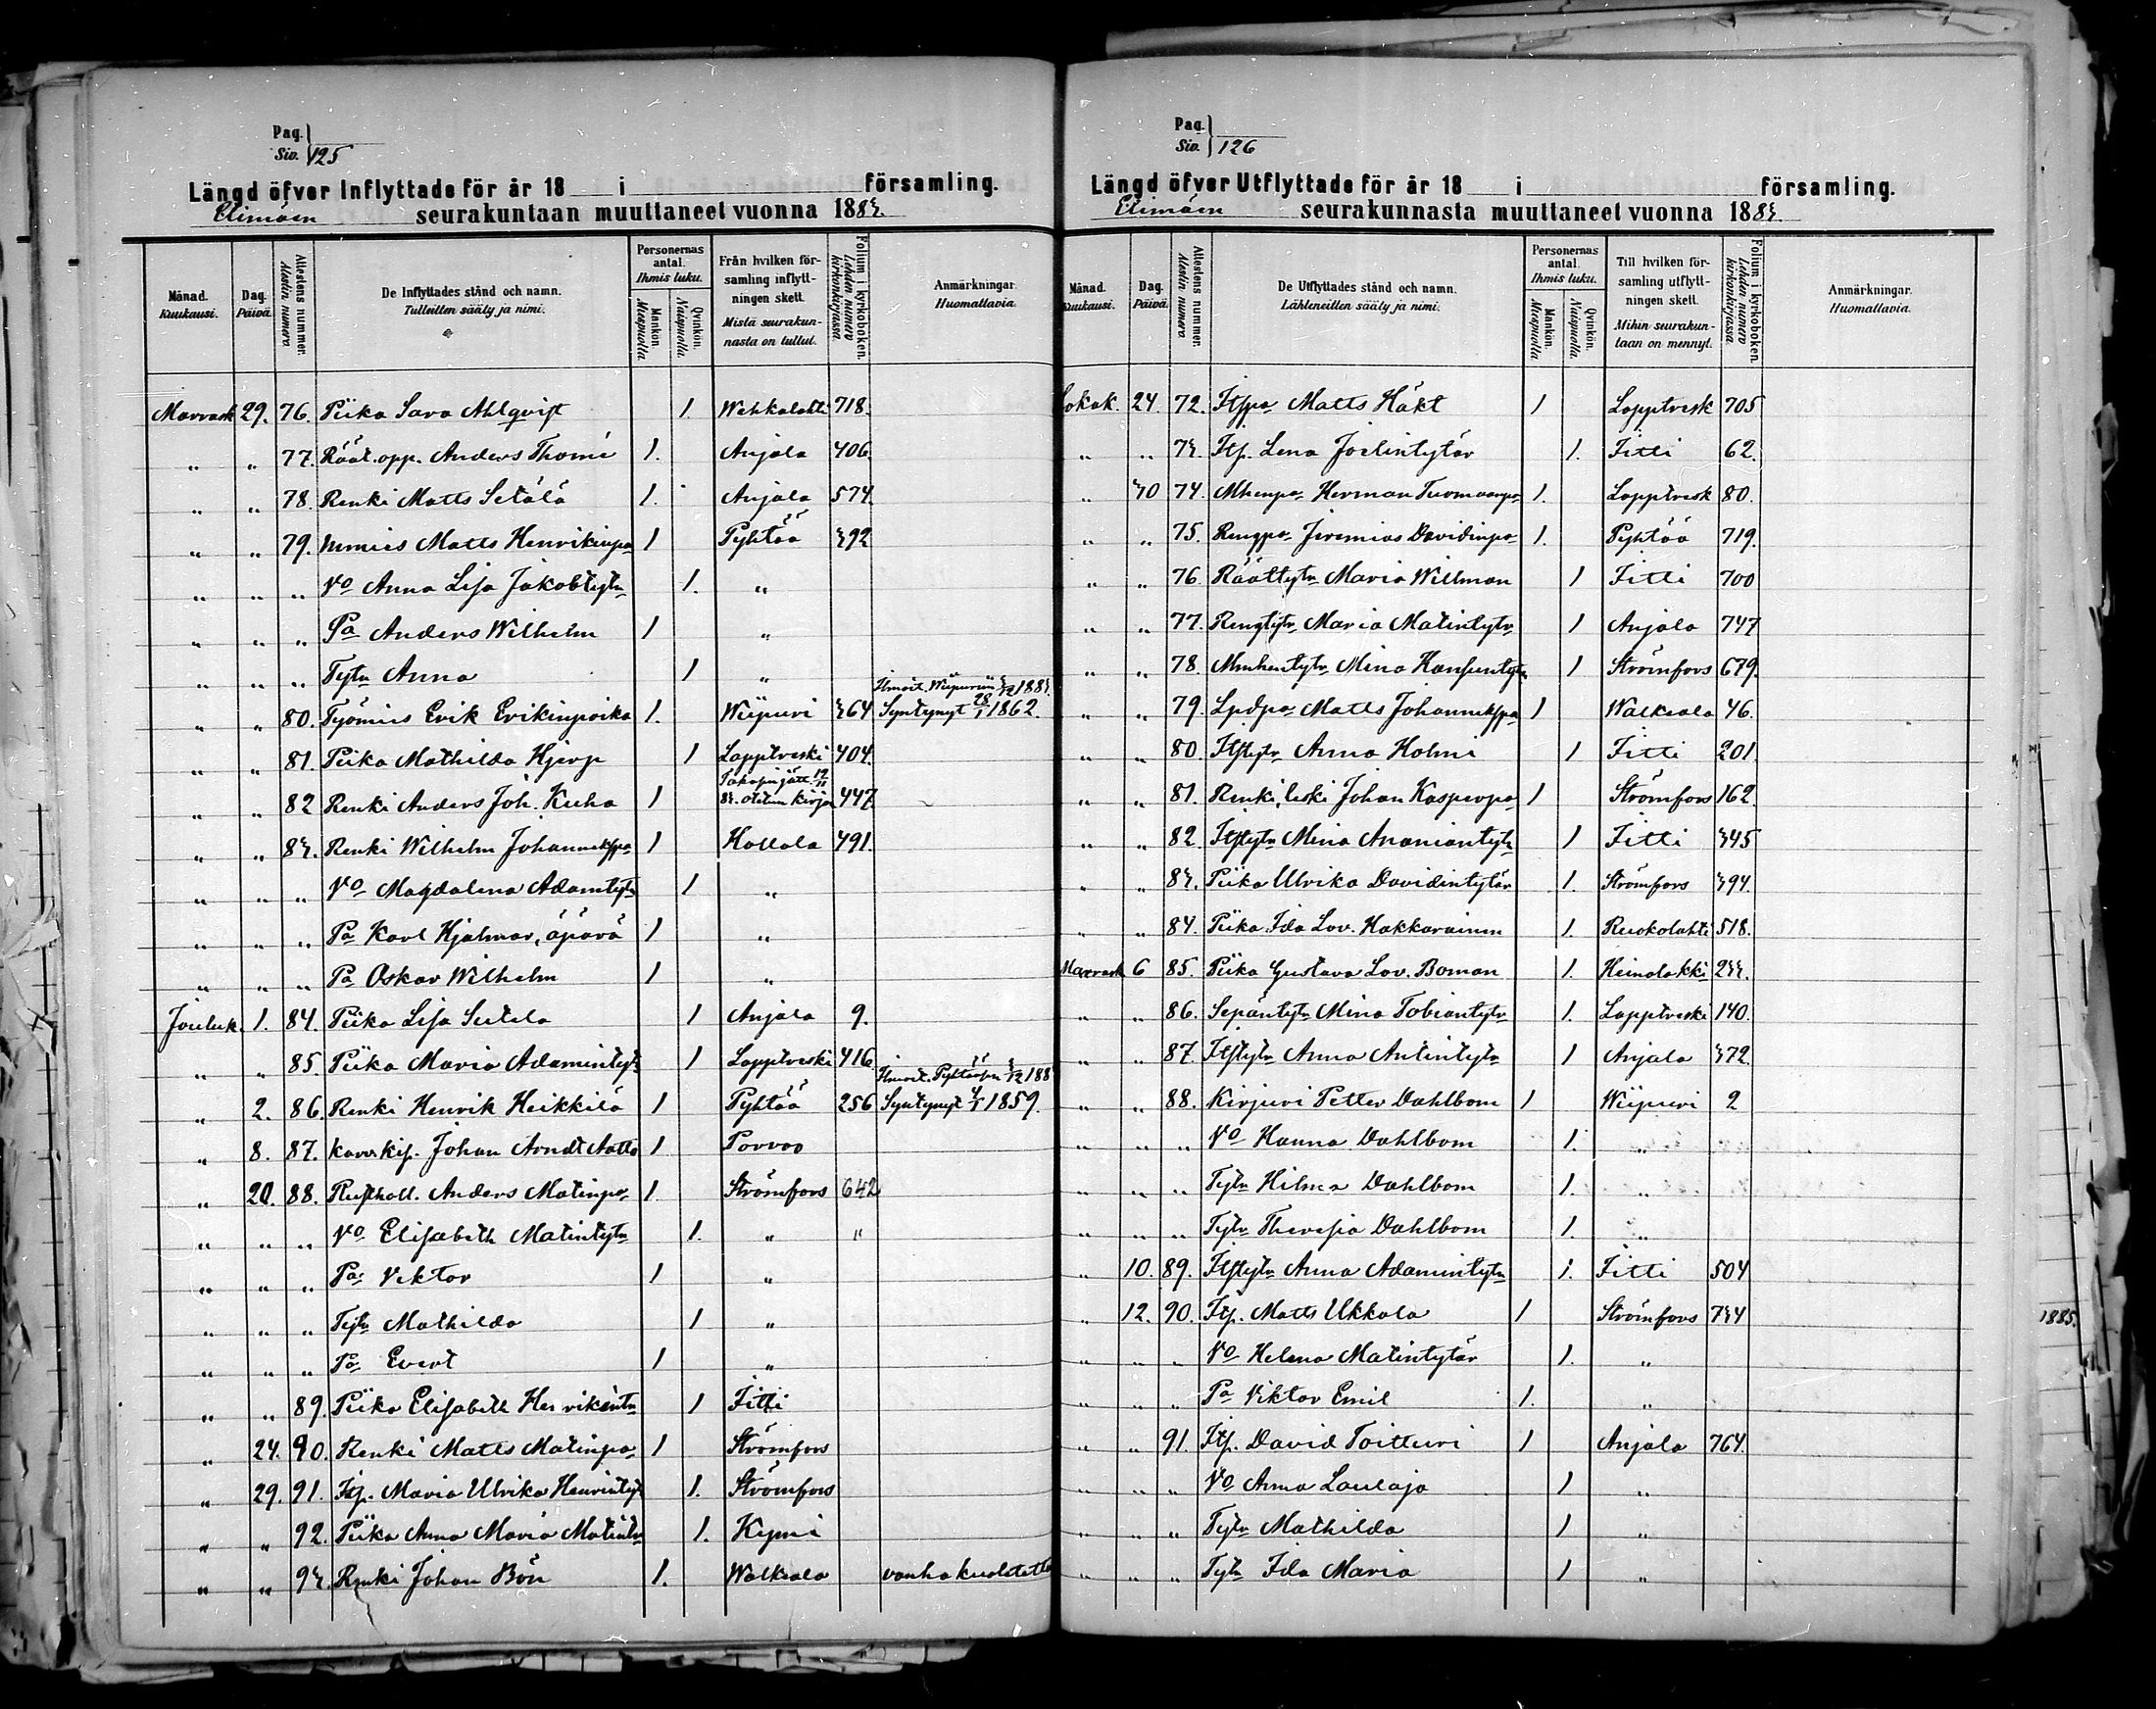 Pag. Siv. 125
Längd öfver Inflyttade för år 18 i församling.
Elimäen seurakuntaan muuttaneet vuonna 1883.
Månad. Kuukausi. Dag. Päivä. Attestens nummer. Atestin numero. De Inflyttades stånd och namn. Tulleitten sääty ja nimi. Personernas antal. Ihmis luku. Mankön. Miespuolia. Qvinkön. Naispuolia. Från hvilken församling inflyttningen skett. Mistä seurakunnasta on tullut. Folium i kyrkoboken. Lehden numero kirkonkirjassa. Anmärkningar. Huomattavia.
Marrask 29. 76. Piika Sara Ahlqvist 1 Wehkalahti 718.
" " 77. Räät. opp. Anders Thomé 1. Anjala 406.
" " 78. Renki Matts Setälä 1. Anjala 574.
" " 79. Mmies Matts Henrikinpa 1 Pyhtää 392
" " " Vo Anna Lisa Jakobtytr 1. "
" " " Pa Anders Wilhelm 1 "
" " " Tytr Anna 1 "
" " 80. Työmies Erik Erikinpoika 1. Wiipuri 364 Ilmoit. Wiipuriin 3/12 1883. Syntynyt 28/1 1862.
" " 81. Piika Mathilda Hjerp 1 Lapptreski 404.
" " 82 Renki Anders Joh. Kuha 1 83. otetun kirja 447.
" " 83. Renki Wilhelm Johanneksspa 1 Hollola 491.
" " " Vo Magdalena Adamtytr 1 "
" " " Pa Karl Hjalmar, äpärä 1 "
" " " Pa Oskar Wilhelm 1 "
Jouluk. 1. 84. Piika Lisa Sutela 1 Anjala 9.
" " 85. Piika Maria Adamintytr 1 Lapptreski 416.
" 2. 86. Renki Henrik Heikkilä 1 Pyhtää 256 Ilmoit. Pyhtääsen 3/12 188 Syntynyt 4/1 1859.
" 8. 87. Johan Arndt Aatto 1 Porvoo
" 20. 88. Rusthall. Anders Matinpo 1. Strömfors 642
" " " Vo Elisabeth Matintytr 1. " "
" " " Pa Viktor 1 "
" " " Tytr Mathilda 1 "
" " " Pa Evert 1 "
" " 89. Piika Elisabeth Henrikintr 1 Iitti
" 24. 90. Renki Matts Matinpo 1 Strömfors
" 29. 91. Itp. Maria Ulrika Henrintytr 1. Strömfors
" " 92. Piika Anna Maria Matintr 1. Kymi
" " 93. Renki Johan Bön 1. Walkeala

Pag. Siv. 126
Längd öfver Utflyttade för år 18 i församling.
Elimäen seurakunnasta muuttaneet vuonna 1883.
Månad. Kuukausi. Dag. Päivä. Attestens nummer. Atestin numero. De Utflyttades stånd och namn. Lähteneitten sääty ja nimi. Personernas antal. Ihmis luku. Mankön. Miespuolia. Qvinkön. Naispuolia. Till hvilken församling utflyttningen skett. Mihin seurakuntaan on mennyt. Folium i kyrkoboken. Lehden numero kirkonkirjassa. Anmärkningar. Huomattavia.
Lokak. 24 72. Itspa Matts Häkt 1 Lapptresk 705
" " 73. Itp. Lena Joelintytär 1. Iitti 62.
" 30 74. Mhenpa Herman Tuomaanpo 1. Lapptresk 80.
" " 75. Rengpa Jeremias Davidinpo 1. Pyhtää 719.
" " 76. Räättytr Maria Willman 1 Iitti 700
" " 77. Rengtytr Maria Matintytr 1 Anjala 747
" " 78. Mmhentytr Mina Hansuntytr 1 Strömfors 679.
" " 79. Lpdpa Matts Johanneksspa 1 Walkeala 46.
" " 80. Itstytr Anna Holmi 1 Iitti 201.
" " 81. Renki, leski Johan Kasperpo 1 Strömfors 162.
" " 82. Itstytr Mina Ananiantytr 1 Iitti 345
" " 83. Piika Ulrika Davidintytär 1. Strömfors 394.
" " 84. Piika Ida Lov. Hakkarainen 1. Ruokolahti 518.
Marrask 6 85. Piika Gustava Lov. Boman 1. 233.
" " 86. Sepäntytr Mina Tobiantytr 1. Lapptreski 140.
" " 87. Itstytr Anna Antintytr 1 Anjala 372.
" " 88. Kirjuri Petter Dahlbom 1 Wiipuri 2
" " " Vo Hanna Dahlbom 1. "
" " " Tytr Hilma Dahlbom 1. "
" " " Tytr Theresia Dahlbom 1. "
" 10. 89. Itstytr Anna Adamintytr 1. Iitti 504
" 12. 90. Itp. Matts Ukkola 1 Strömfors 734
" " " Vo Helena Matintytär 1. "
" " " Pa Viktor Emil 1. "
" " 91. Itp. David Toitturi 1 Anjala 764.
" " " Vo Anna Laulaja 1 "
" " " Tytr Mathilda 1 "
" " " Tytr Ida Maria 1 "
1885.